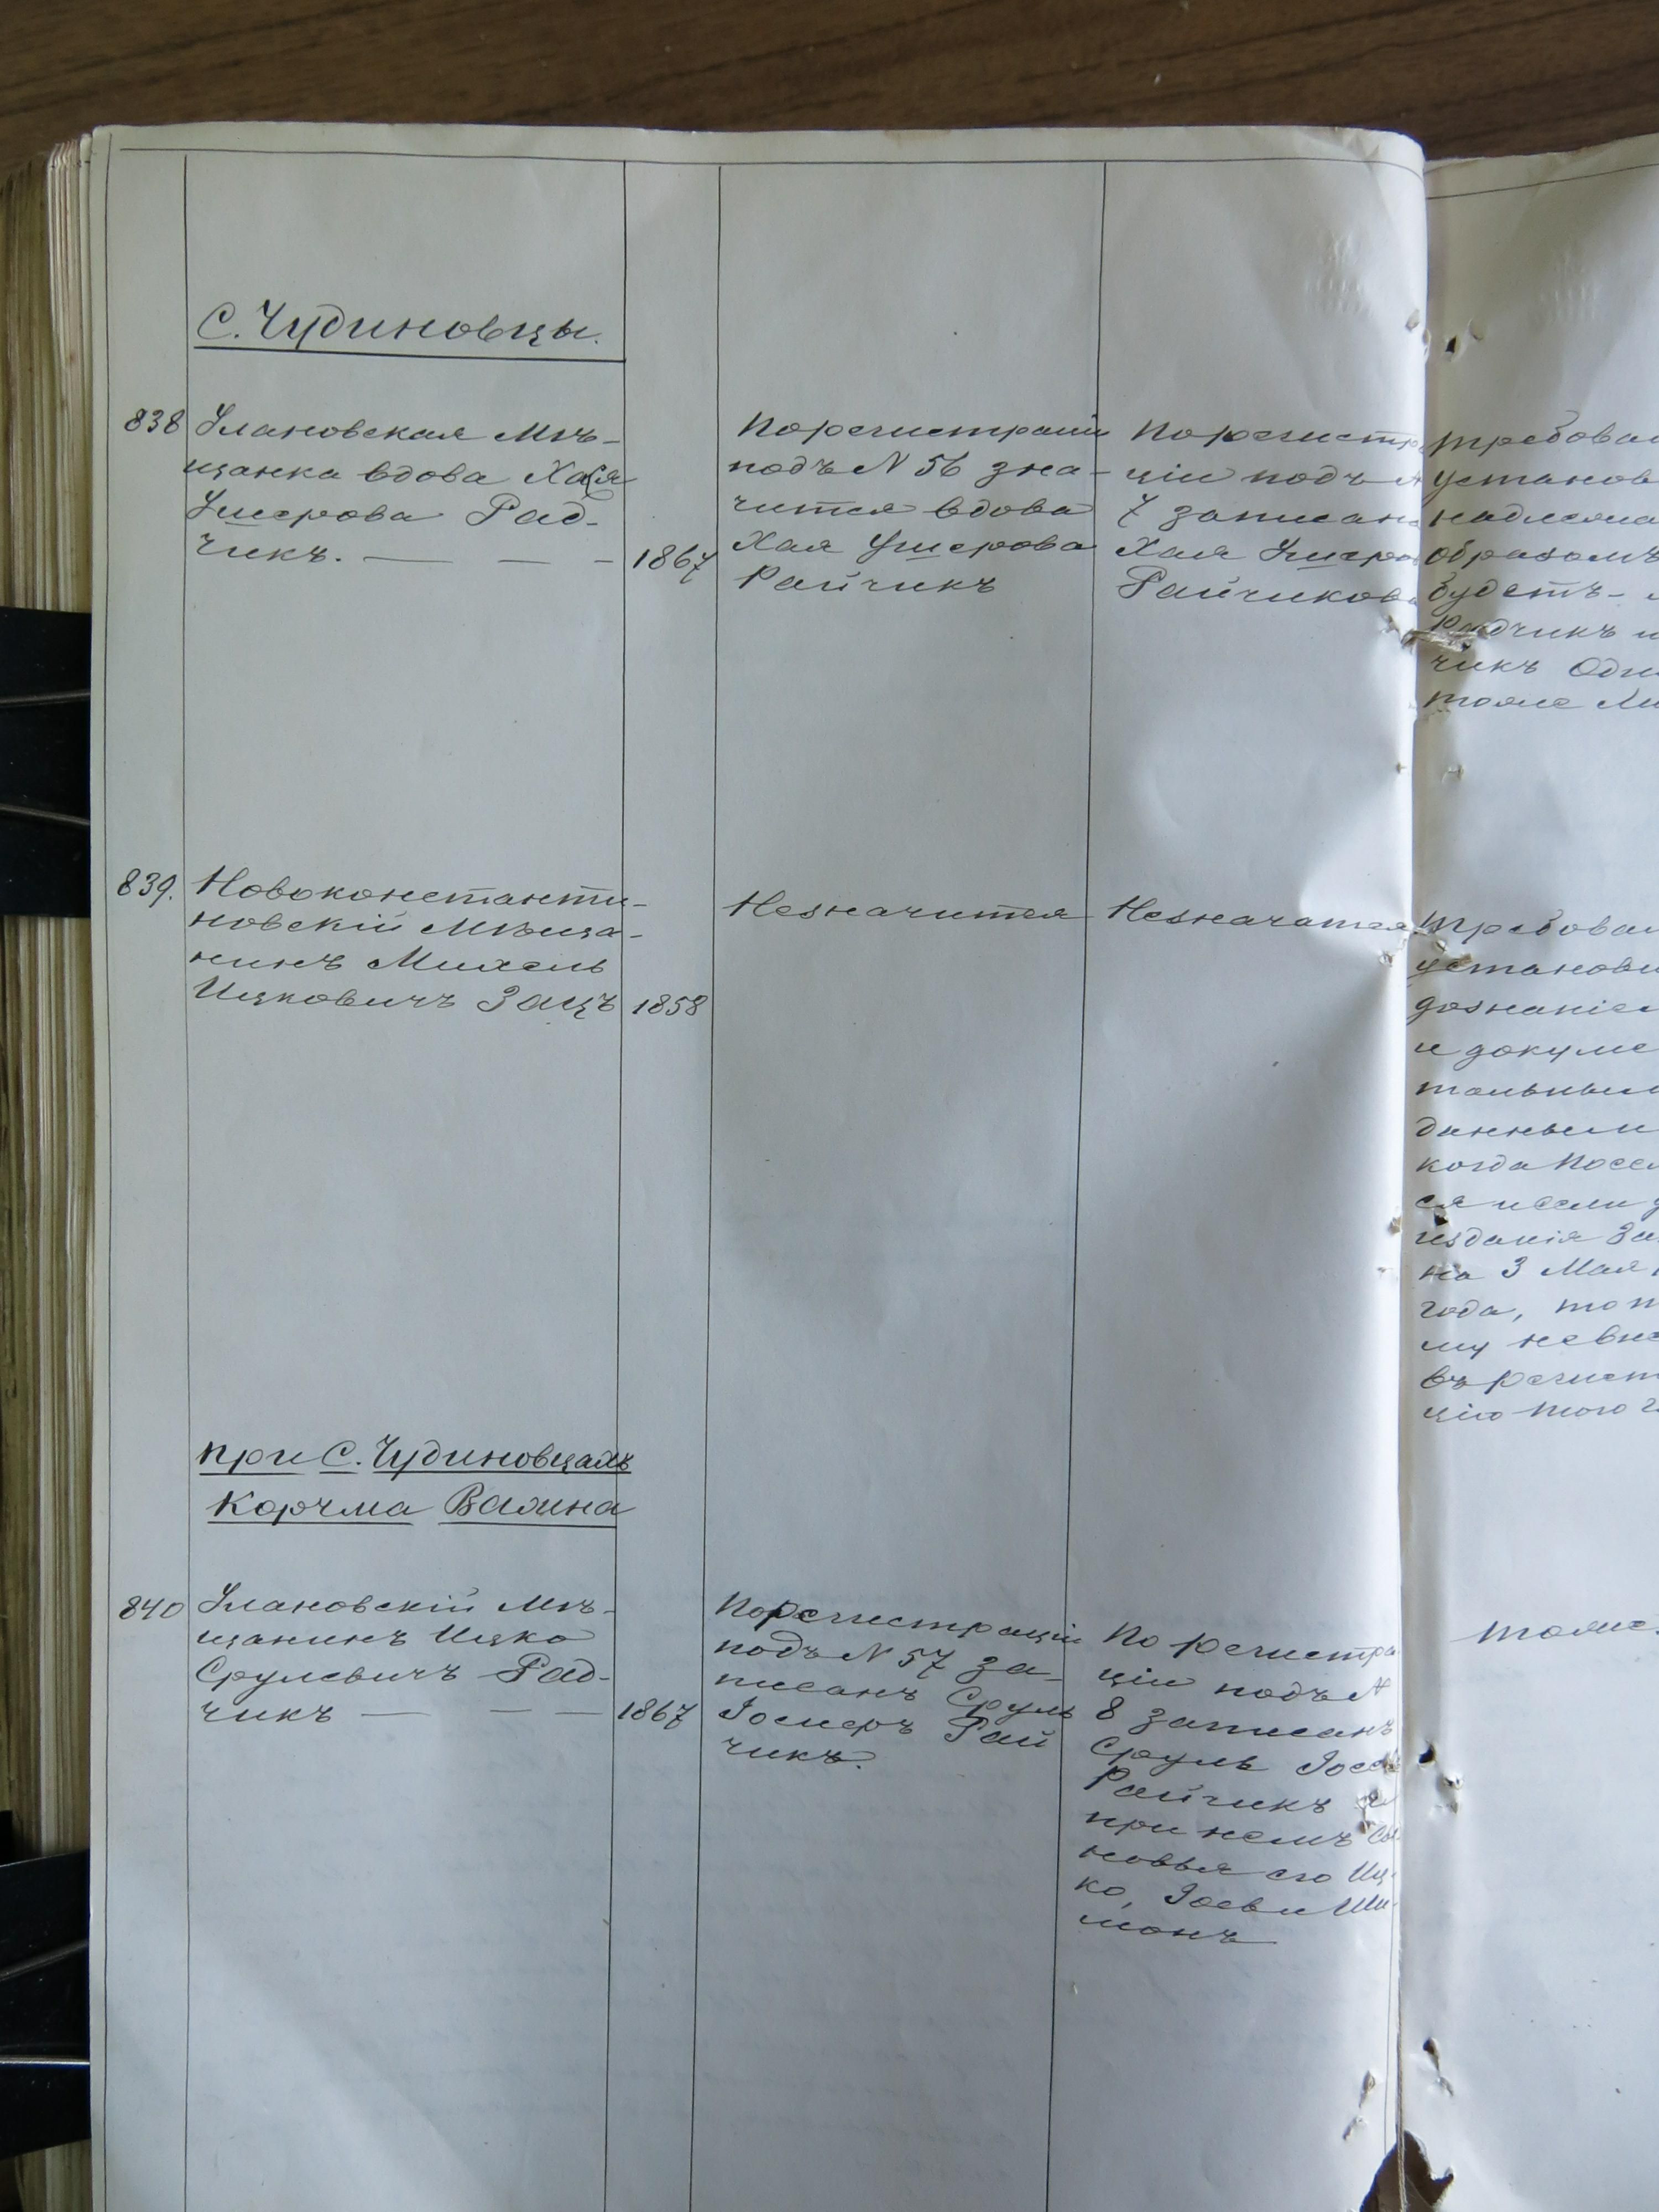 С. Чудиновцы.
838 Улановская Мѣ-
щанка вдова Хая
Ушерова Рад-
чикъ. — — — 1867
По регистраціи
подъ N 56 зна-
чится вдова
Хая Ушерова
Райчикъ
По регистра
ціи подъ N
7 записана
Хая Ушеро
Райчикова
требова
установ
надлежа
образомъ
будетъ-
Радчикъ и
чикъ Одн
тоже Ли
839. Новоконстанти-
новскій Мѣща-
нинъ Михель
Ицковичъ Зацъ 1858
Незначится
Незначится
Требова
установи
дознаніе
и докуме
тальным
данным
когда посел
ся и если
изданія За
на 3 Мая
года, то п
му не вне
въ регист
цію того г
при С. Чудиновцахъ
Корчма Валина
840 Улановскій Мѣ-
щанинъ Ицко
Срулевичъ Рад-
чикъ — — — 1867
По регистраціи
подъ N 57 за-
писанъ Сруль
Іосперъ Рай
чикъ.
По регистра
ціи подъ N
8 записанъ
Сруль Іос
Райчикъ
при немъ сы
новья его Иц-
ко, Іос и Ши-
монъ
тоже.